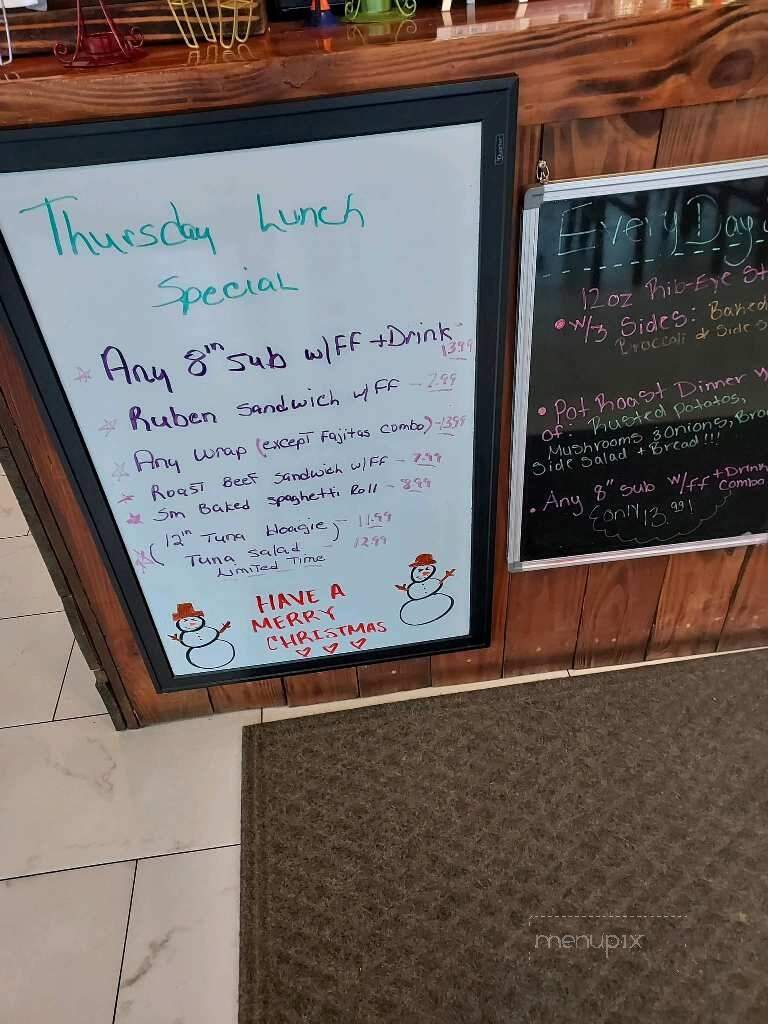 Thursday Lunch
Special
Any 8" sub w/FF + Drink 13.99
Ruben Sandwich w/ FF - 7.99
Any wrap (except Fajitas Combo) - 13.99
Roast Beef Sandwich w/FF - 7.99
Sm Baked spaghetti Roll - 8.99
(12" Tuna Hoagie) - 11.99
Tuna Salad - 12.99
Limited Time
HAVE A
MERRY
CHRISTMAS
Every Day
12oz Rib-Eye St
• w/3 Sides: Baked
Broccoli & Side S
• Pot Roast Dinner w
of: Rusted Potatos,
Mushrooms & Onions, Bro
Side Salad + Bread!!!
• Any 8" sub w/ff + Drink
Combo
(only 13.99)
menupix